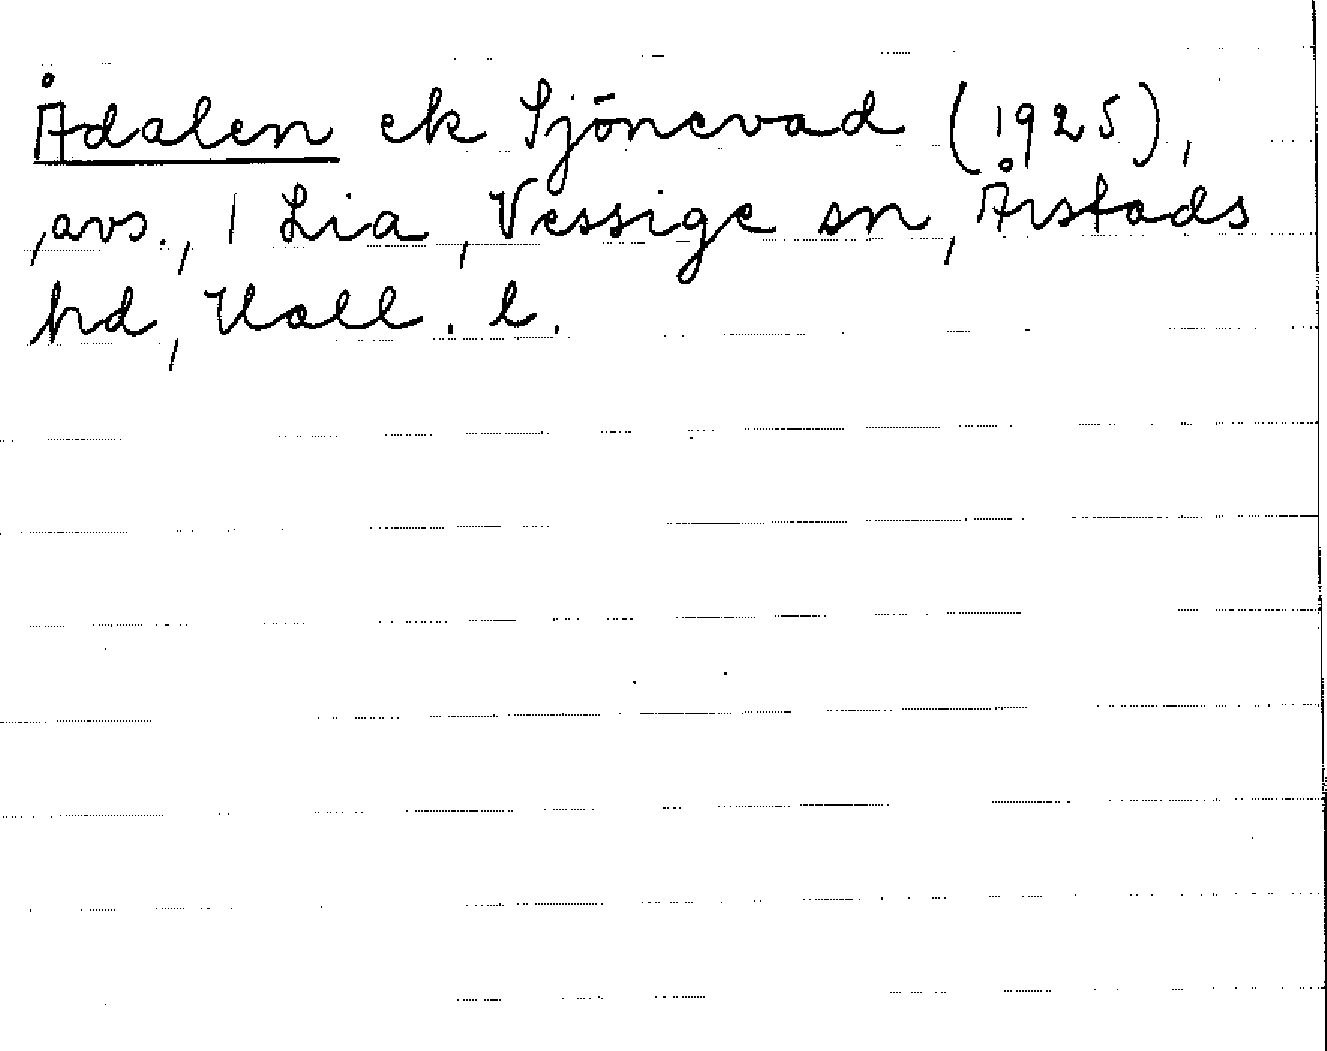 Ådalen ek Sjönevad (1925),
avs., 1 Lia, Vessige sn, Årstads
hd, Hall. l.